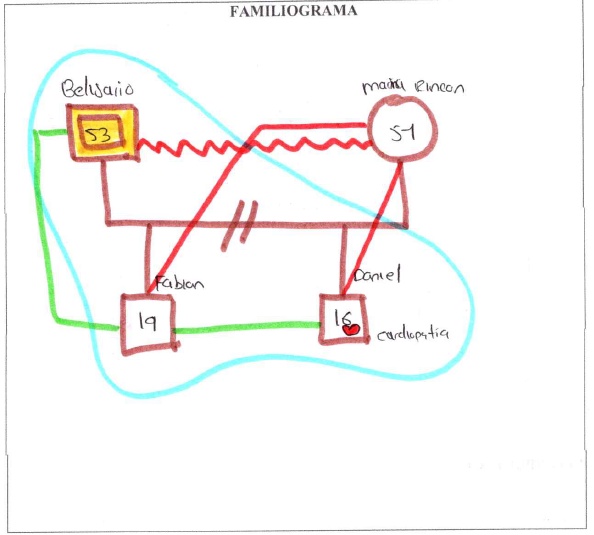 FAMILIOGRAMA
Belisario
Rincon
53
Fabian
Daniel
19
16
cardiopatia